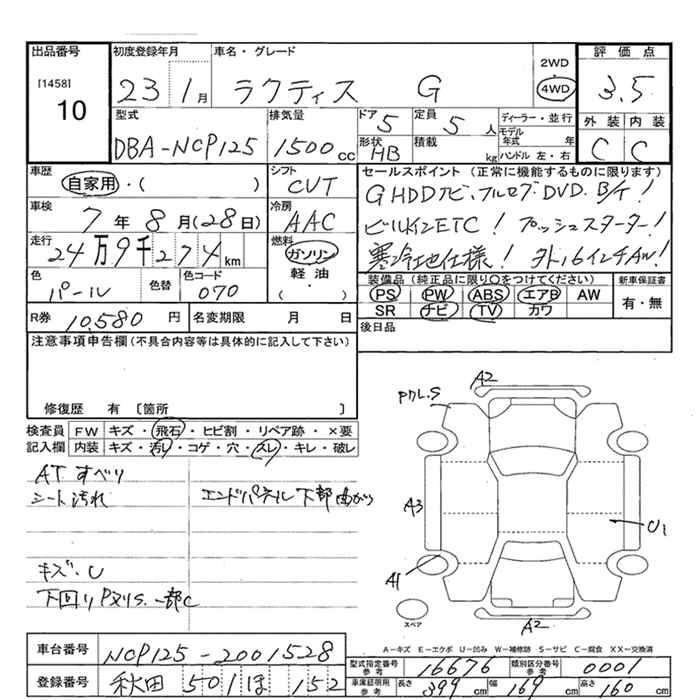 出品番号 初度登録年月 車名・グレード 2WD 評価点
[1458] 10 23 1月 ラクティス G 4WD 3.5
型式 排気量 ドア 5 定員 5人 ディーラー・並行 外装 内装
DBA-NCP125 1500cc 形状 HB 積載 kg モデル年式 年 ハンドル 左・右 C C
車歴 自家用・( ) シフト CVT セールスポイント (正常に機能するものに限ります)
G HDDナビ、フルセグDVD、B/T!
車検 7年8月(28日) 冷房 AAC ビルトインETC! プッシュスターター!
走行 24万9千274km 燃料 ガソリン 寒冷地仕様! 外16インチAW!
色 パール 色替 色コード 070 軽油・( )
装備品 (純正品に限り〇をつけてください) 新車保証書
PS PW ABS エアB AW 有・無
SR ナビ TV カワ
R券 10,580円 名変期限 月 日 後日品
注意事項申告欄(不具合内容等は具体的に記入して下さい)
修復歴 有 [箇所 ]
検査員 FW キズ・飛石・ヒビ割・リペア跡・×要
記入欄 内装 キズ・汚レ・コゲ・穴・スレ・キレ・破レ
ATすべり
シート汚れ エンドパネル下部曲がり
キズ・U
下回りPヌリS、一部C
PクルS
A2
A3
U1
A1
スペア
A2
A-キズ E-エクボ U-凹み W-補修跡 S-サビ C-腐食 XX-交換済
車台番号 NCP125-2001528
型式指定番号 参考 16676 類別区分番号 参考 0001
登録番号 秋田 501 ほ 152
車庫証明用 参考 長さ 399cm 幅 169cm 高さ 160cm